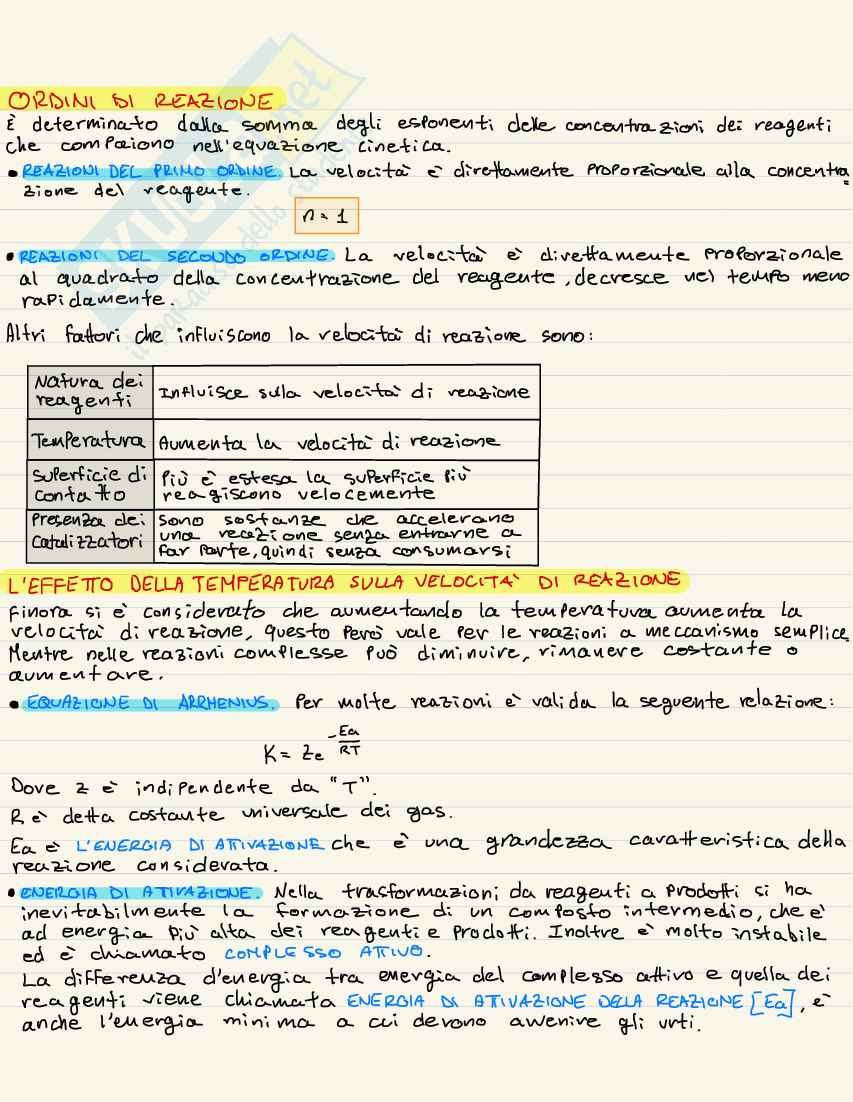 ORDINI DI REAZIONE
È determinato dalla somma degli esponenti delle concentrazioni dei reagenti
che compaiono nell'equazione cinetica.
• REAZIONI DEL PRIMO ORDINE. La velocità è direttamente proporzionale alla concentra
zione del reagente.
n = 1
• REAZIONI DEL SECONDO ORDINE. La velocità è direttamente proporzionale
al quadrato della concentrazione del reagente, decresce nel tempo meno
rapidamente.
Altri fattori che influiscono la velocità di reazione sono:
Natura dei
reagenti
Influisce sulla velocità di reazione
Temperatura
Aumenta la velocità di reazione
Superficie di
contatto
Più è estesa la superficie più
reagiscono velocemente
Presenza dei
catalizzatori
Sono sostanze che accelerano
una reazione senza entrarne a
far parte, quindi senza consumarsi
L'EFFETTO DELLA TEMPERATURA SULLA VELOCITÀ DI REAZIONE
Finora si è considerato che aumentando la temperatura aumenta la
velocità di reazione, questo però vale per le reazioni a meccanismo semplice.
Mentre nelle reazioni complesse può diminuire, rimanere costante o
aumentare.
• EQUAZIONE DI ARRHENIUS. Per molte reazioni è valida la seguente relazione:
K = Ze^-Ea/RT
Dove z è indipendente da "T".
R è detta costante universale dei gas.
Ea è L'ENERGIA DI ATTIVAZIONE che è una grandezza caratteristica della
reazione considerata.
• ENERGIA DI ATTIVAZIONE. Nella trasformazioni da reagenti a prodotti si ha
inevitabilmente la formazione di un composto intermedio, che è
ad energia più alta dei reagenti e prodotti. Inoltre è molto instabile
ed è chiamato COMPLESSO ATTIVO.
La differenza d'energia tra energia del complesso attivo e quella dei
reagenti viene chiamata ENERGIA DI ATTIVAZIONE DELLA REAZIONE [Ea], è
anche l'energia minima a cui devono avvenire gli urti.